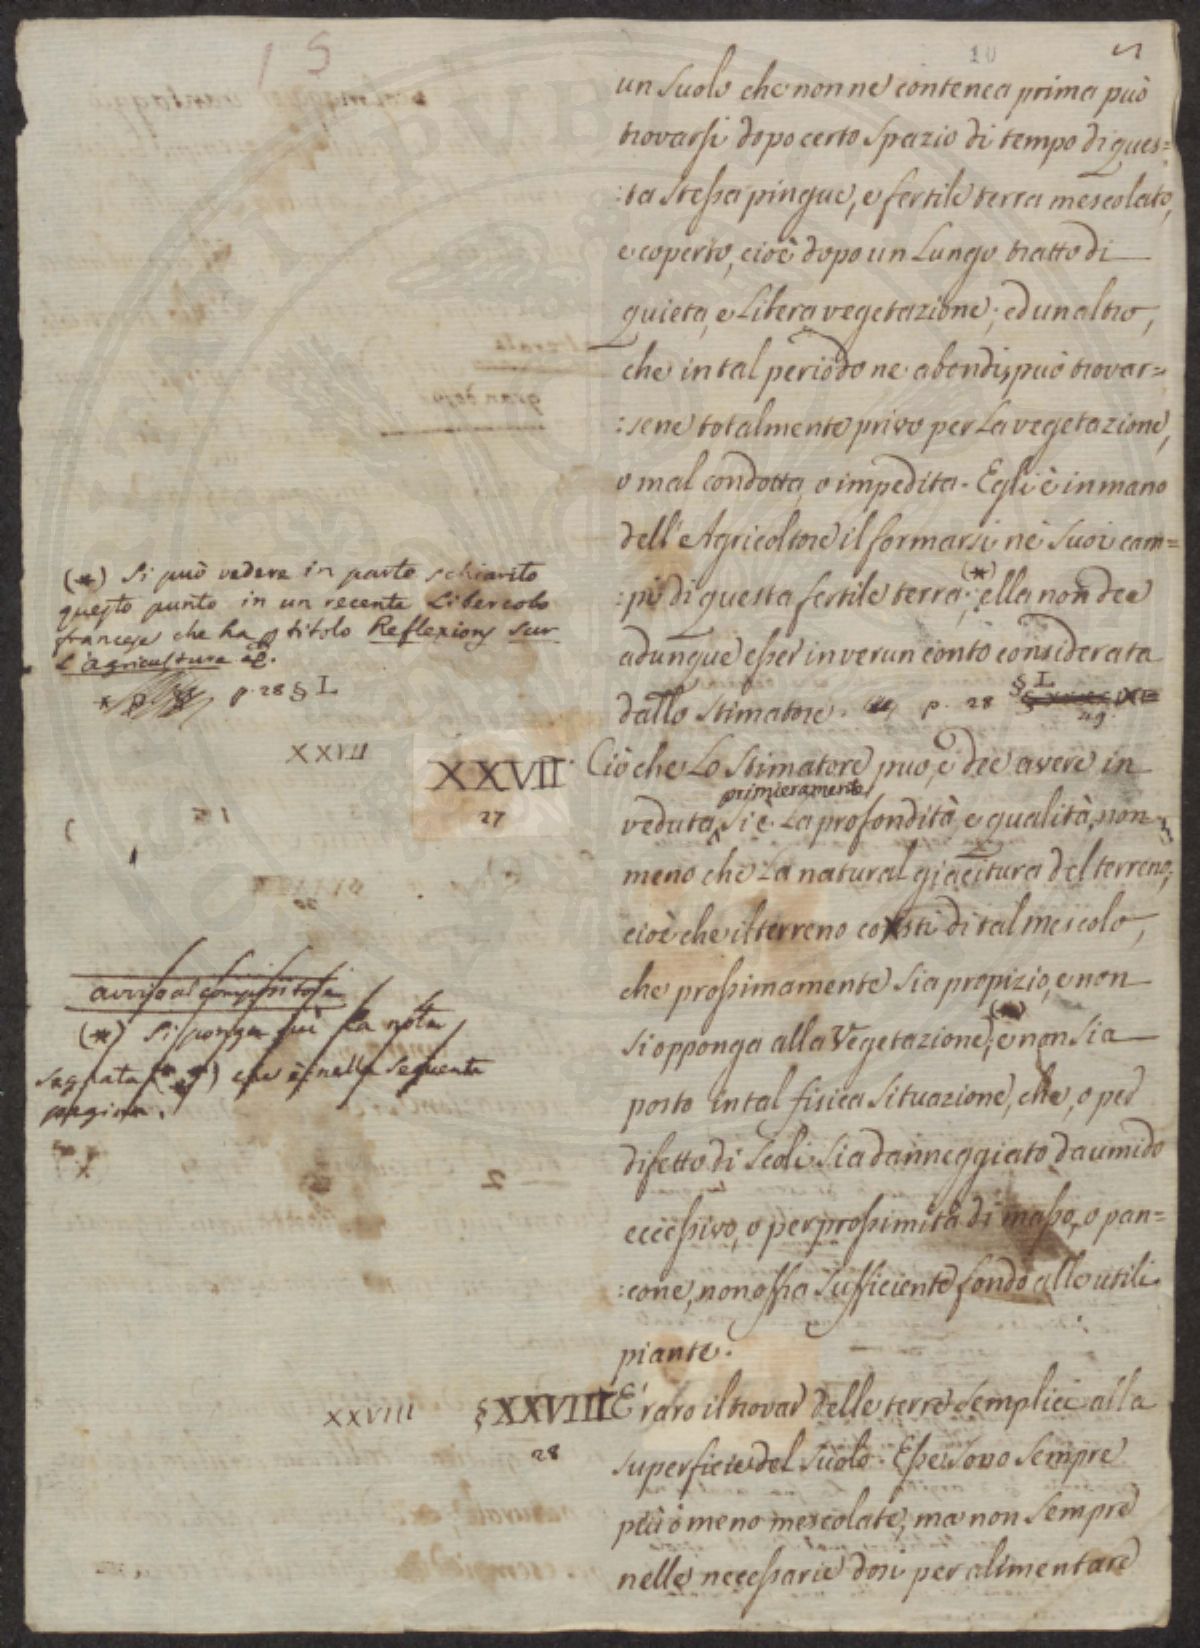 15
10
5
un suolo che non ne contenea prima può
trovarsi dopo certo spazio di tempo di ques=
:ta stessa pingue, e fertile terra mescolato,
e coperto, cioè dopo un lungo tratto di
quieta, e libera vegetazione; ed un altro,
che in tal periodo ne abondi, può trovar=
:sene totalmente privo per la vegetazione,
o mal condotta, o impedita. Egli è in mano
dell'Agricoltore il formarsi ne' suoi cam=
:pi di questa fertile terra. (*) ella non dee
adunque esser in verun conto considerata
dallo stimatore. p. 28 § L
29
(*) Si può vedere in parte schiarito
questo punto in un recente Libercolo
francese che ha p titolo Reflexions sur
l'agriculture &c.
* p. 28 § L
XXVII
XXVII
27
Ciò che lo Stimatore può, e dee avere in
primieramente
veduta, si è la profondità, e qualità, non
meno che la natural giacitura del terreno;
cioè che il terreno consti di tal mescolo,
che prossimamente sia propizio, e non
si opponga alla Vegetazione, (*) e non sia
posto in tal fisica situazione, che, o per
difetto di scoli sia danneggiato da umido
eccessivo, o per prossimità di masso, o pan=
:cone, non offra sufficiente fondo alle utili
piante.
avviso al compositore
(*) Si ponga qui la nota
segnata (**) che è nella seguente
pagina.
XXVIII
§ XXVIII
28
E' raro il trovar delle terre semplici alla
superficie del suolo. Esse sono sempre
più o meno mescolate, ma non sempre
nelle necessarie dosi per alimentare